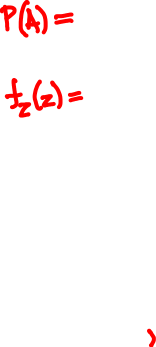 P(A) =
f_Z(z) =
,